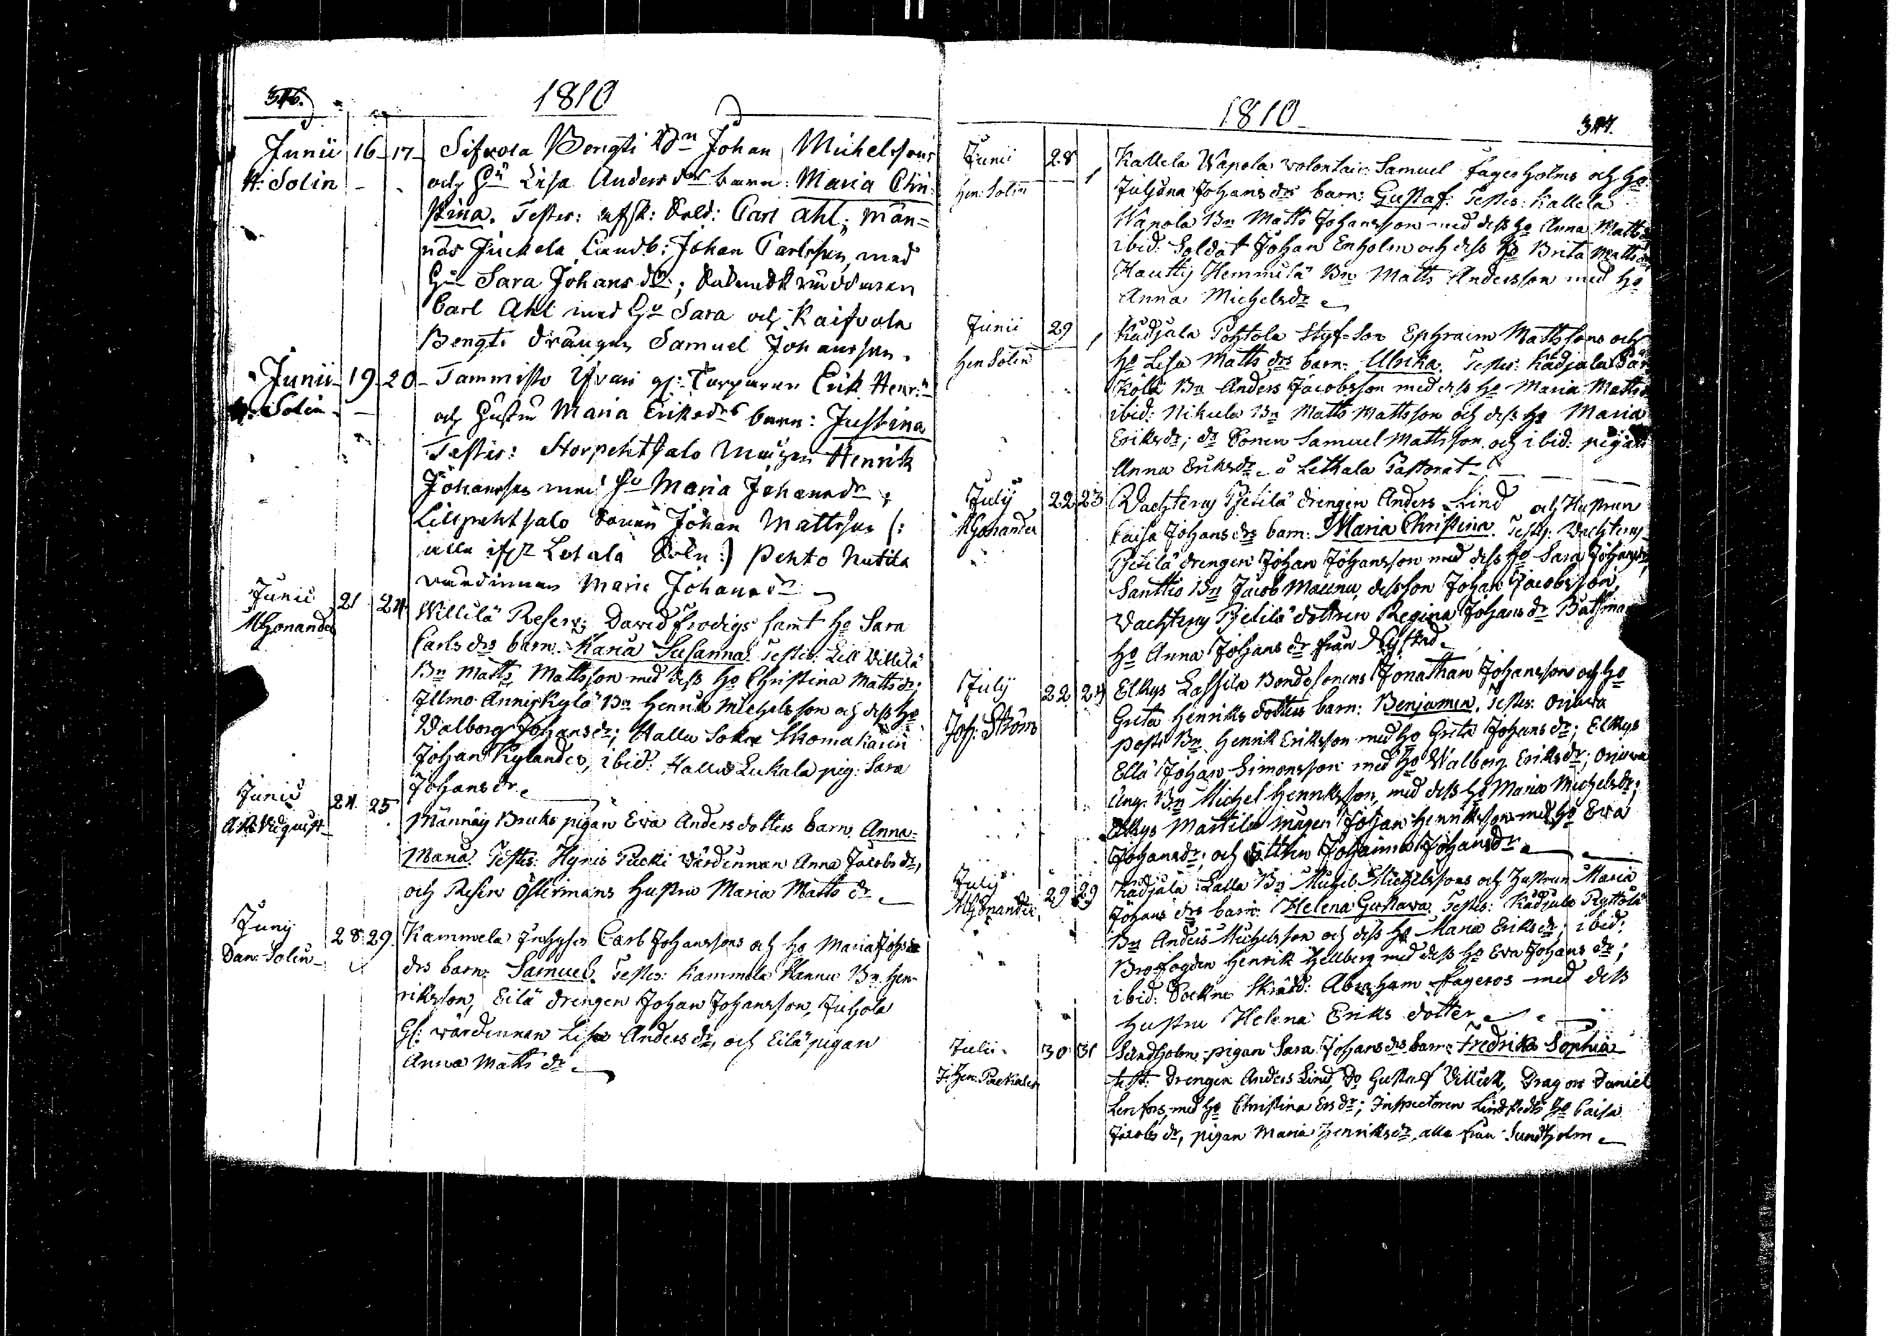 346.
1810
Junii 16 17 Sifvola Bengti Bn Johan Michelssons
H: Solin och Hu Lisa Anders drs barn: Maria Chri-
stina. Testes: afsk: Sold: Carl Ahl; Män-
näs Juckela Landb: Johan Carlsson, med
Hu Sara Johans dr;
Carl Ahl med Hu Sara och Kaifvola
Bengti drängen Samuel Johansson.
Junii 19 20 Tammisto Yrjari gl: Torparen Erik Henr:
H: Solin och Hustru Maria Eriksdrs barn: Justina
Testes: Storpehtsalo Mågen Henrik
Johansson med Hu Maria Johansdr;
Lillpehtsalo Sonen Johan Mattsson (:
alla ifr Letala Sokn:) Pehto Nutila
värdinnan Maria Johansdr
Junii 21 24 Willilä Reserv: David Frodigs samt Ho Sara
M Gonander Carls drs barn: Karia Susanna. Testes: Lill Villilä
Bn Matts Mattsson med dess Ho Christina Matts dr;
Illmo Annis Kylä Bn Henrik Michelsson och dess Ho
Walborg Johansdr; Hallu Sokne Skomakaren
Johan Rylander, ibid: Hallu Leukala pig: Sara
Johansdr
Junii 24 25 Männäis Bruks pigan Eva Andersdotters barn Anna
Maria. Testes: Hynis Packi värdinnan Anna Jacobsdr,
och Reserv Östermans Hustru Maria Matts dr
Junij 28 29 Kammela Inhyses Carl Johanssons och Ho Maria Johans
Dan: Solin drs barn: Samuel. Testes: Kammela Hannu Bn Hen-
riksson, Eilä drengen Johan Johansson, Juhola
Gl: wärdinnan Lisa Andersdr, och Eilä pigan
Anna Matts dr
1810
347.
Junii 28 Kallela Wapola volontair: Samuel Fagerholms och Ho
Hen: Solin Juliana Johans drs barn: Gustaf. Testes: Kallela
Wapola Bn Matts Johansson med dess Ho Anna Matts dr
ibid: Soldat Johan Enholm och dess Ho Brita Matts dr,
Hautis Hemmilä Bn Matts Andersson med Ho
Anna Michelsdr
Junii 29 Kadjala Pohtola Styf-Son Ephraim Mattssons och
Hen: Solin Ho Lisa Matts drs barn: Ulrika. Testes: Kadjala Sär
kölä Bn Anders Jacobsson med dess Ho Maria Mattsdr
ibid: Nikula Bn Matts Mattsson och dess Ho Maria
Eriksdr; dr Sonen Samuel Mattsson och ibid: pigan
Anna Eriksdr i Lethala Pastorat
July 22 23 Wachterus Pietilä drengen Anders Lind och Hustrun
M Gonander Caisa Johans drs barn: Maria Christina. Testes: Wachterus
Pietilä drengen Johan Johansson med dess Ho Sara Johansdr,
Santtio Bn Jacob Maunu, dess son Johan Jacobsson,
Wachterus Pietilä dottren Regina Johans dr Båtsman
Ho Anna Johansdr från Nystad
July 22 24 Elkys Lassila Bondesonens Jonathan Johanssons och Ho
Joh: Ström Greta Henriks dotters barn: Benjamin. Testes: Orivara
Posti Bn Henrik Eriksson med Ho Greta Johans dr; Elkys
Ella Johan Simonsson med Ho Walborg Eriks dr; Orivara
Ang: Bn Michel Henriksson, med dess Ho Maria Michels dr;
Elkys Martila mågen Johan Henriksson med Ho Eva
Johansdr; och Johanna Johansdr
July 29 29 Kadjala Lalla Bn Michel Michelssons och Hustrun Maria
M Gonander Johans drs barn: Helena Gustava. Testes: Kadjala Ryttilä
Bn Anders Michelsson och dess Ho Maria Eriks dr; ibid:
Brofogden Henrik Hellberg med dess Ho Eva Johans dr;
ibid: Sockne Skrädd: Abraham Fageros med dess
Hustru Helena Eriks dotter
Julii 30 31 Sundholm pigan Sara Johans drs barn: Fredrika Sophia
test: Drengen Anders Lind, Do Gustaf Villick, Dragon Daniel
Lenfors med Ho Christina Ers dr; Inspectoren Lindstedts Ho Caisa
Jacobs dr, pigan Maria Henriksdr, alla från Sundholm